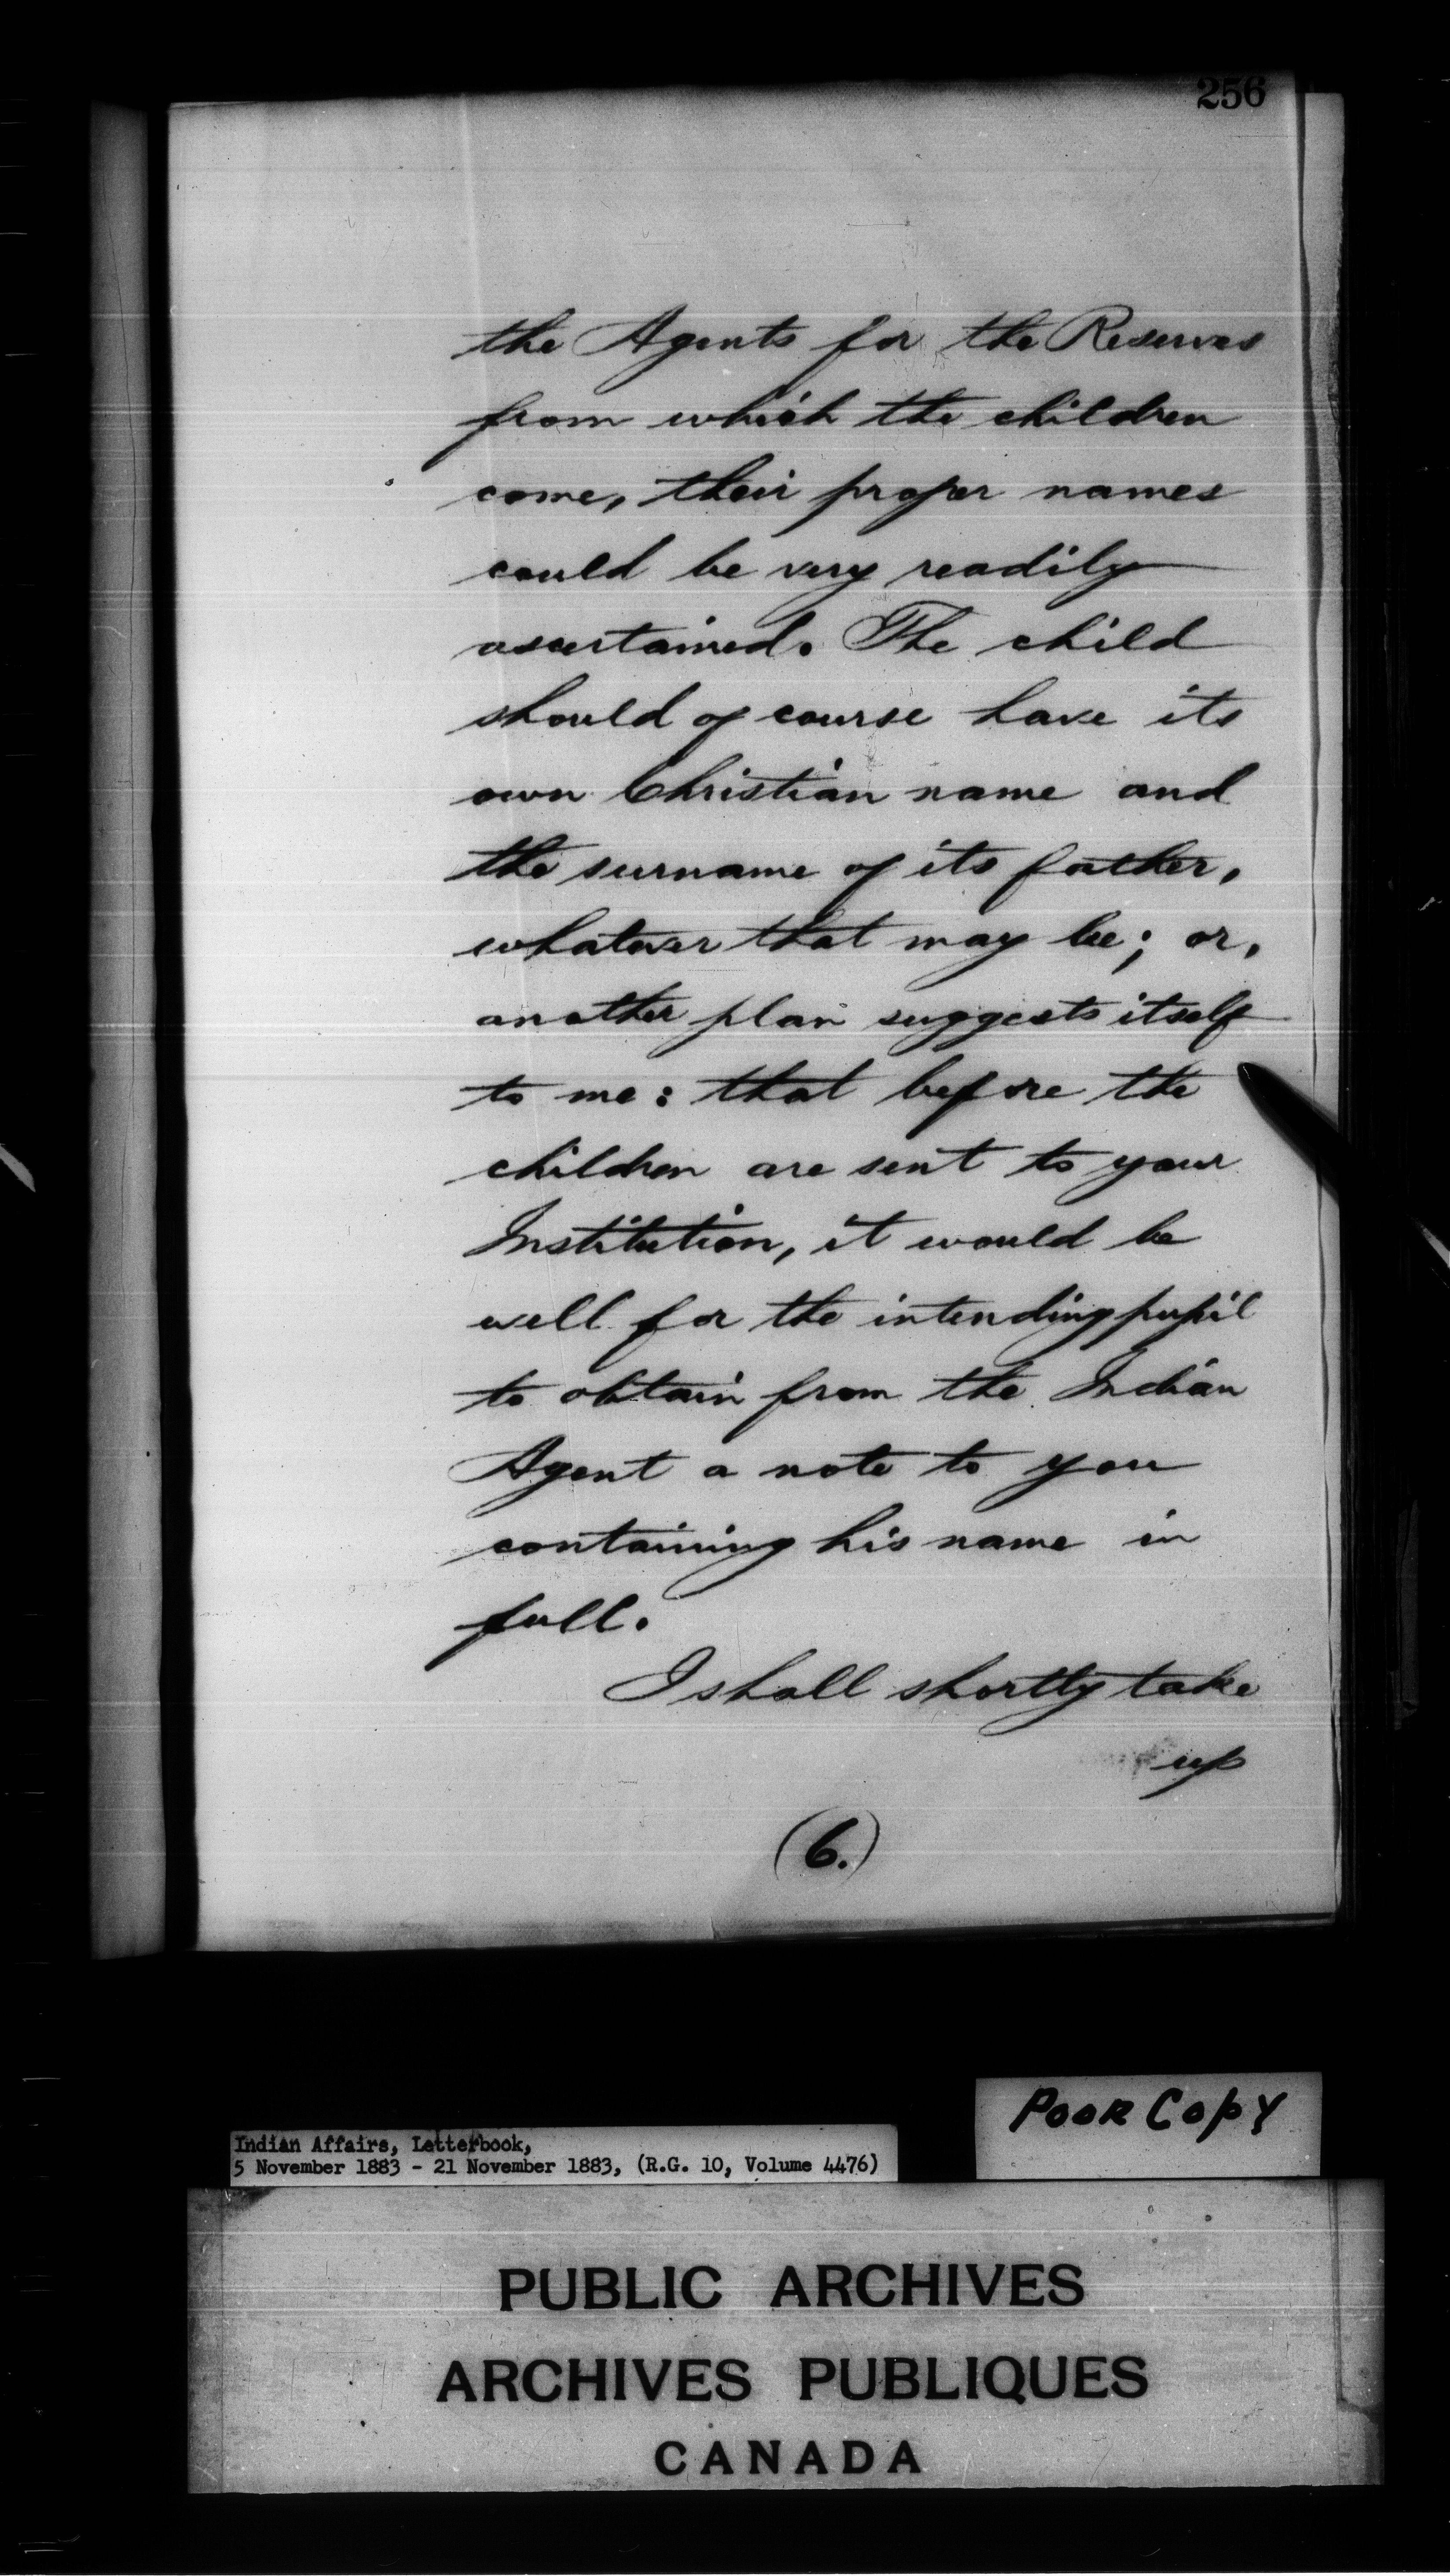 256
the Agents for the Reserves
from which the children
come, their proper names
could be very readily
ascertained. The child
should of course have its
own Christian name and
the surname of its father,
whatever that may be; or,
another plan suggests itself
to me: that before the
children are sent to your
Institution, it would be
well for the intending pupil
to obtain from the Indian
Agent a note to you
containing his name in
full.
I shall shortly take
up
(6.)
Poor Copy
Indian Affairs, Letterbook,
5 November 1883 - 21 November 1883, (R.G. 10, Volume 4476)
PUBLIC ARCHIVES
ARCHIVES PUBLIQUES
CANADA